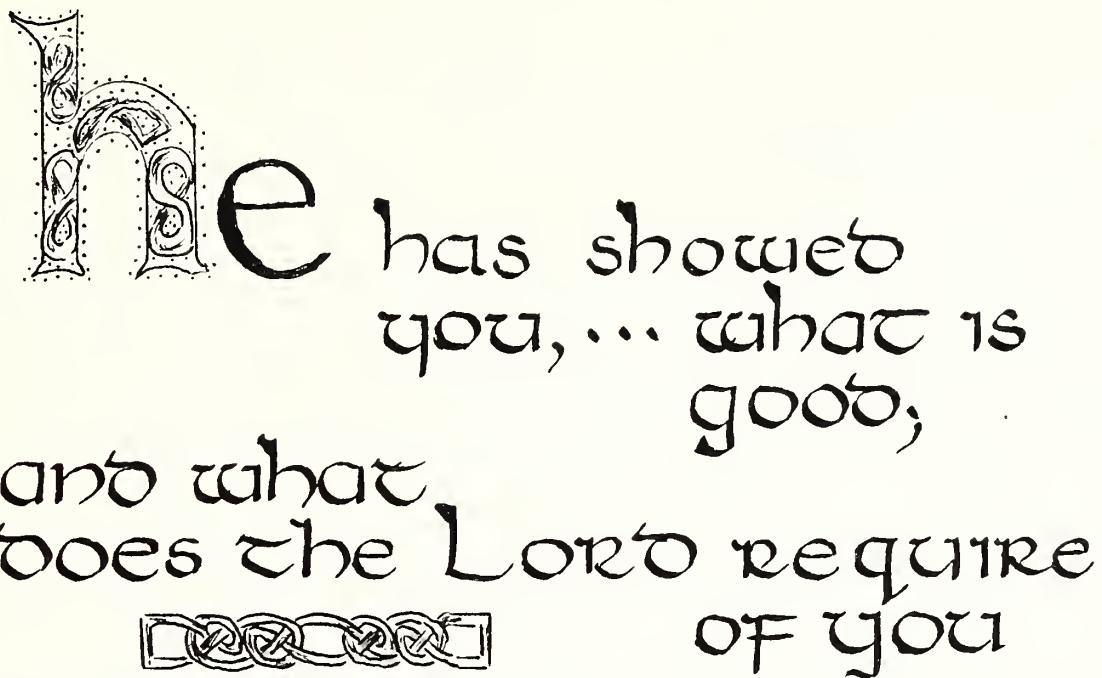 he has showed
you,... what is
good;
and what
does the Lord require
of you